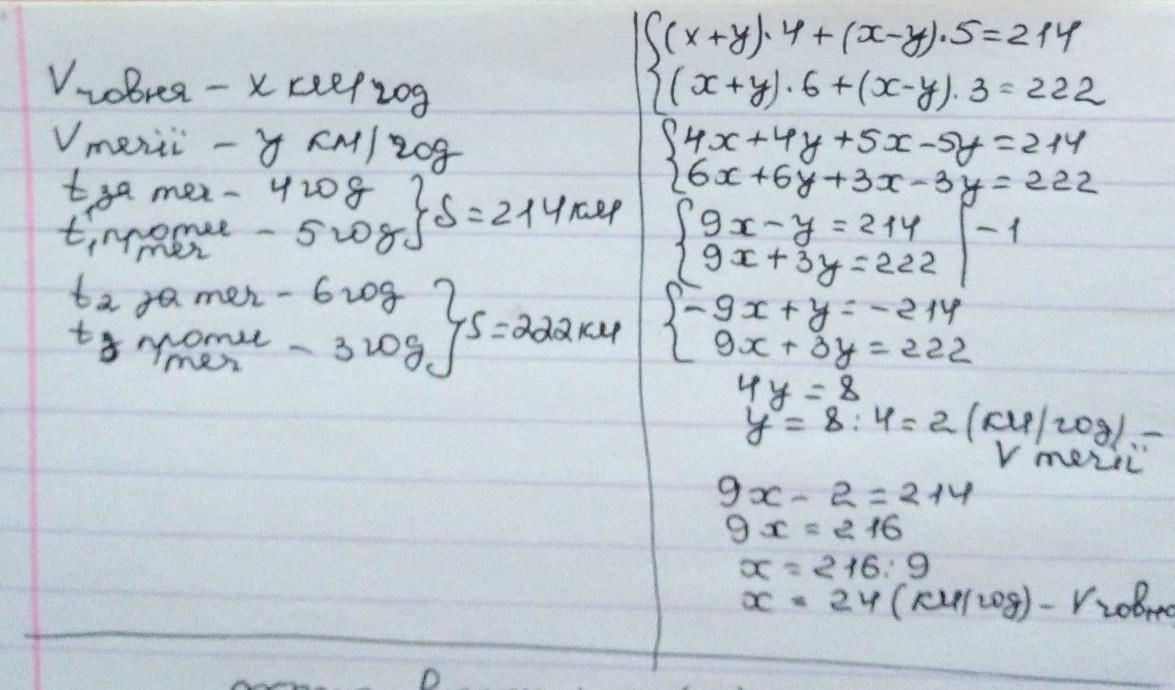 Vчовня – x км/год
Vтечії – y км/год
t₁ за теч – 4 год
t₁ проти теч – 5 год } S = 214 км
t₂ за теч – 6 год
t₂ проти теч – 3 год } S = 222 км
{(x+y)·4+(x-y)·5=214
{(x+y)·6+(x-y)·3=222
{4x+4y+5x-5y=214
{6x+6y+3x-3y=222
{9x-y=214 | -1
{9x+3y=222
{-9x+y=-214
{9x+3y=222
4y=8
y=8:4=2 (км/год) –
V течії
9x-2=214
9x=216
x=216:9
x=24 (км/год) – Vчовна